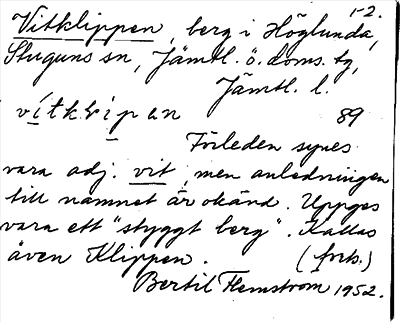 1-2.
Vitklippen, berg i Höglunda,
Stuguns sn, Jämtl. ö. doms. tg,
Jämtl. l.
vítklipan 89
Förleden synes
vara adj. vit, men anledningen
till namnet är okänd. Uppges
vara ett "styggt berg". Kallas
även Klippen. (forts.)
Bertil Flemström 1952.